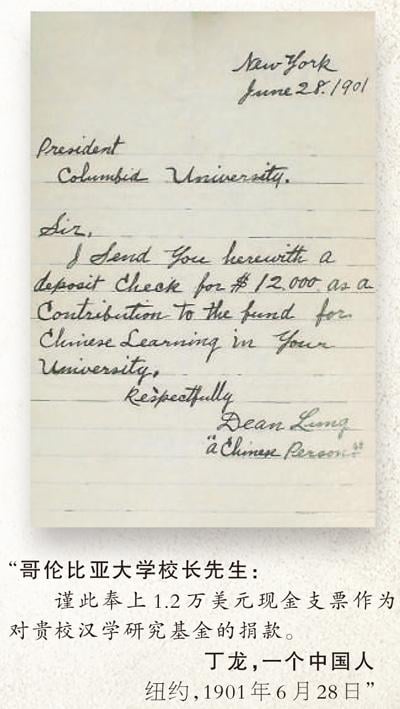 New York
June 28. 1901
President
Columbia University.
Sir,
I Send You herewith a
deposit Check for $ 12.000 as a
Contribution to the fund for
Chinese Learning in Your
University.
Respectfully
Dean Lung
"a Chinese Person"
“哥伦比亚大学校长先生：
谨此奉上1.2万美元现金支票作为
对贵校汉学研究基金的捐款。
丁龙，一个中国人
纽约，1901年6月28日”